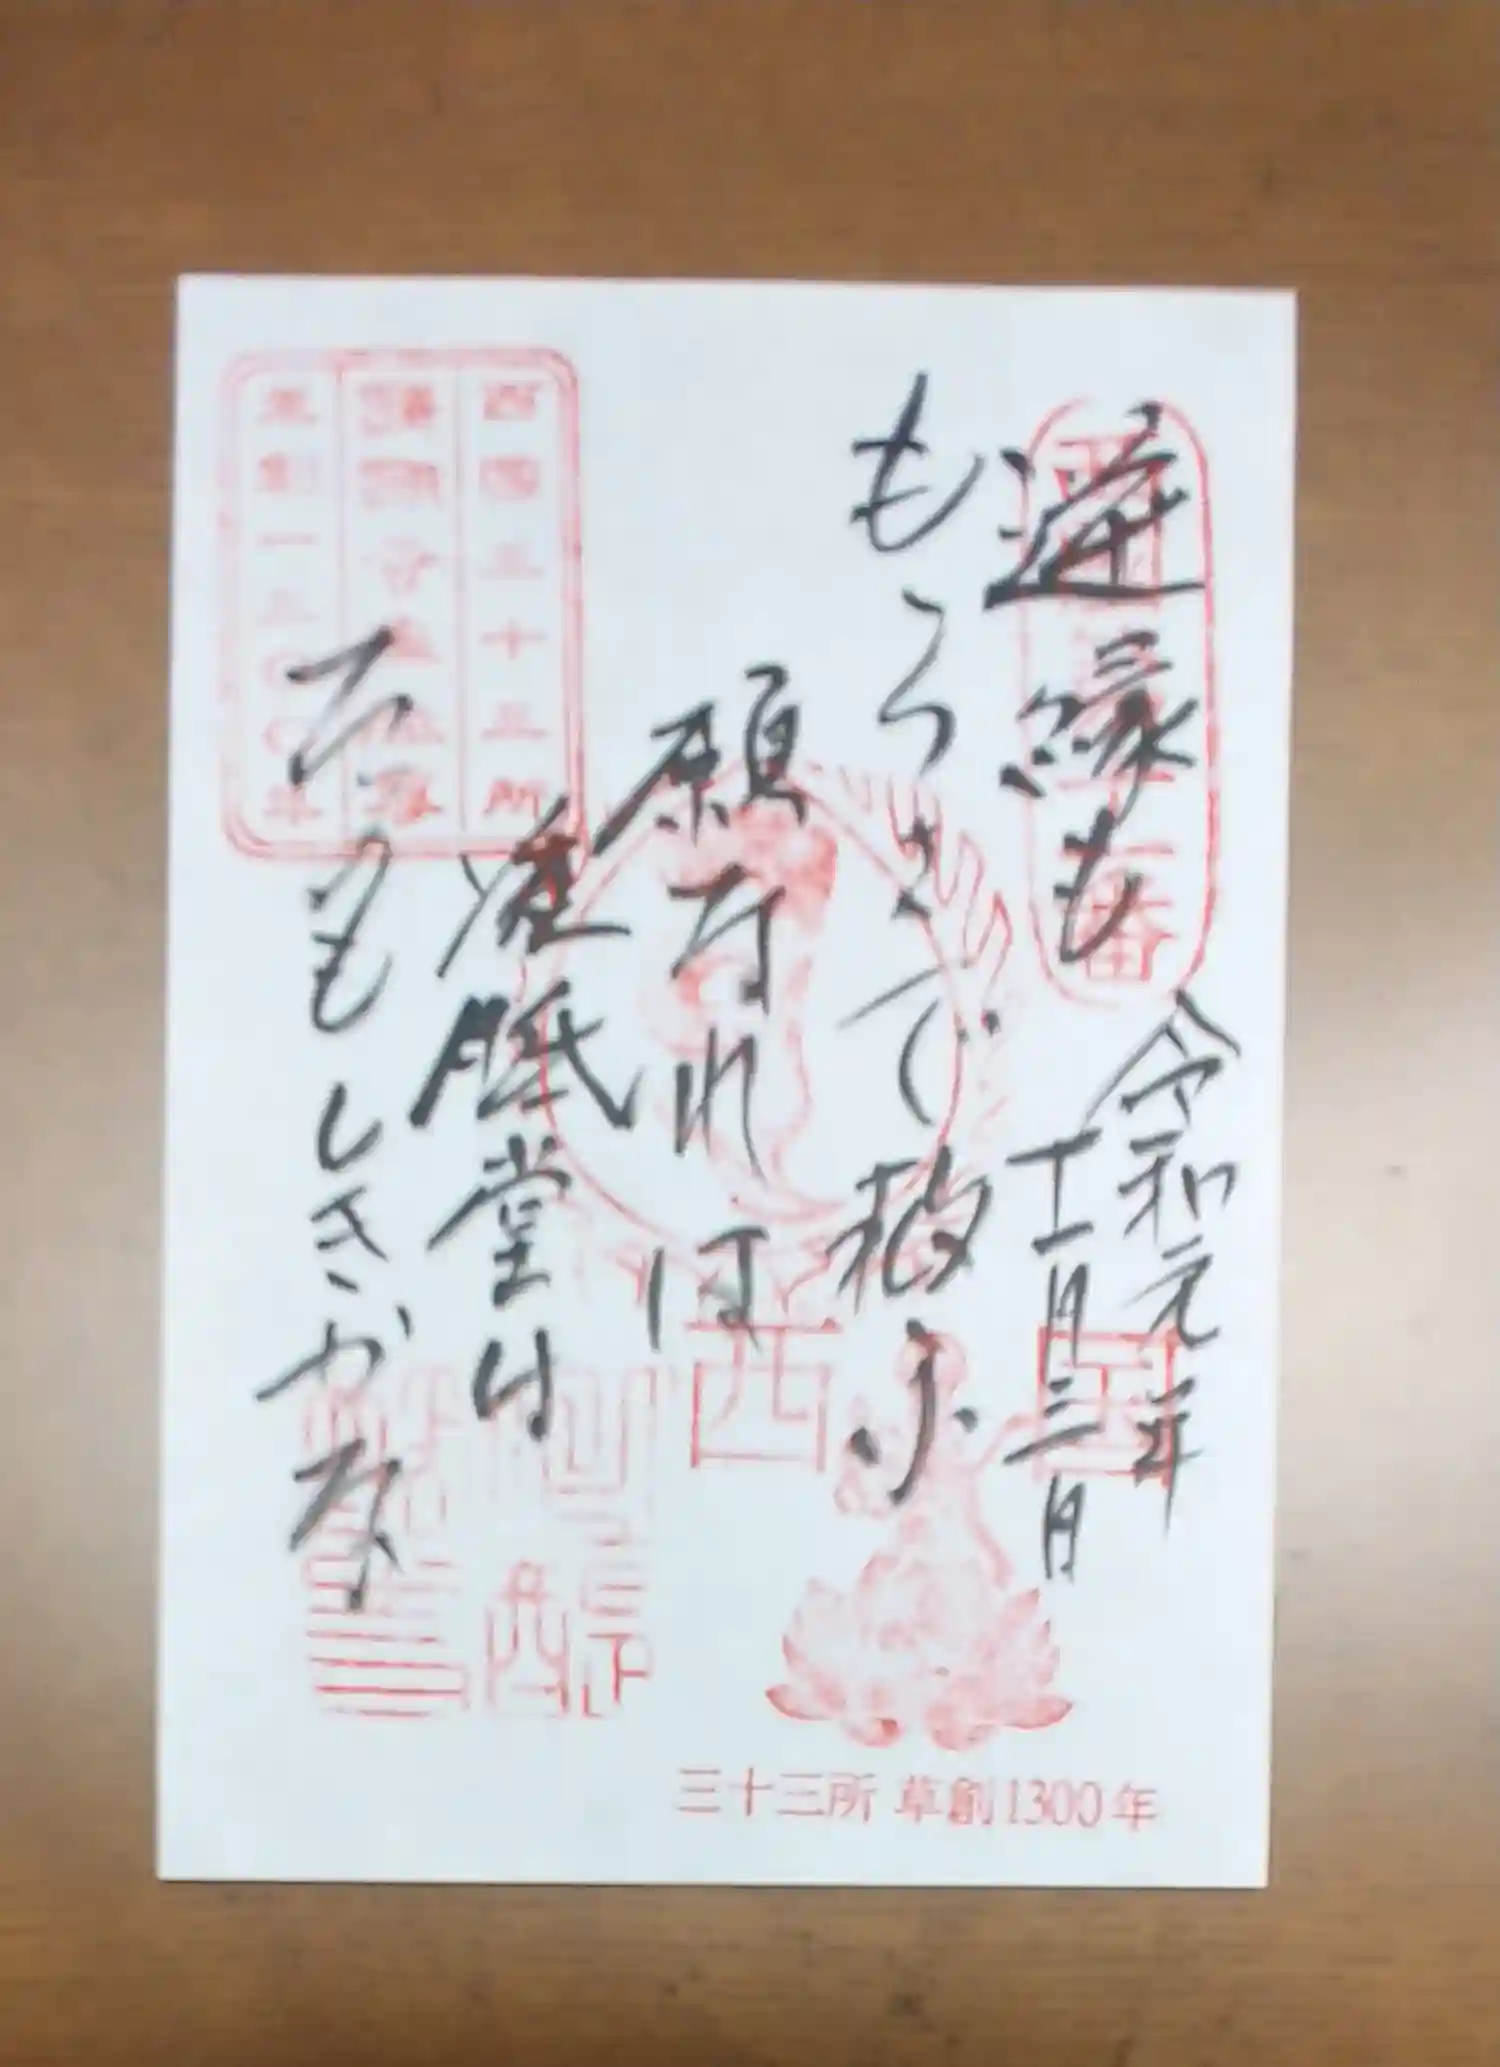 逆縁も
令和元年
十一月三日
もらさで救ふ
願なれば
准胝堂は
たのもしきかな
西国三十三所
草創一三〇〇年
西国
三十三所 草創1300年